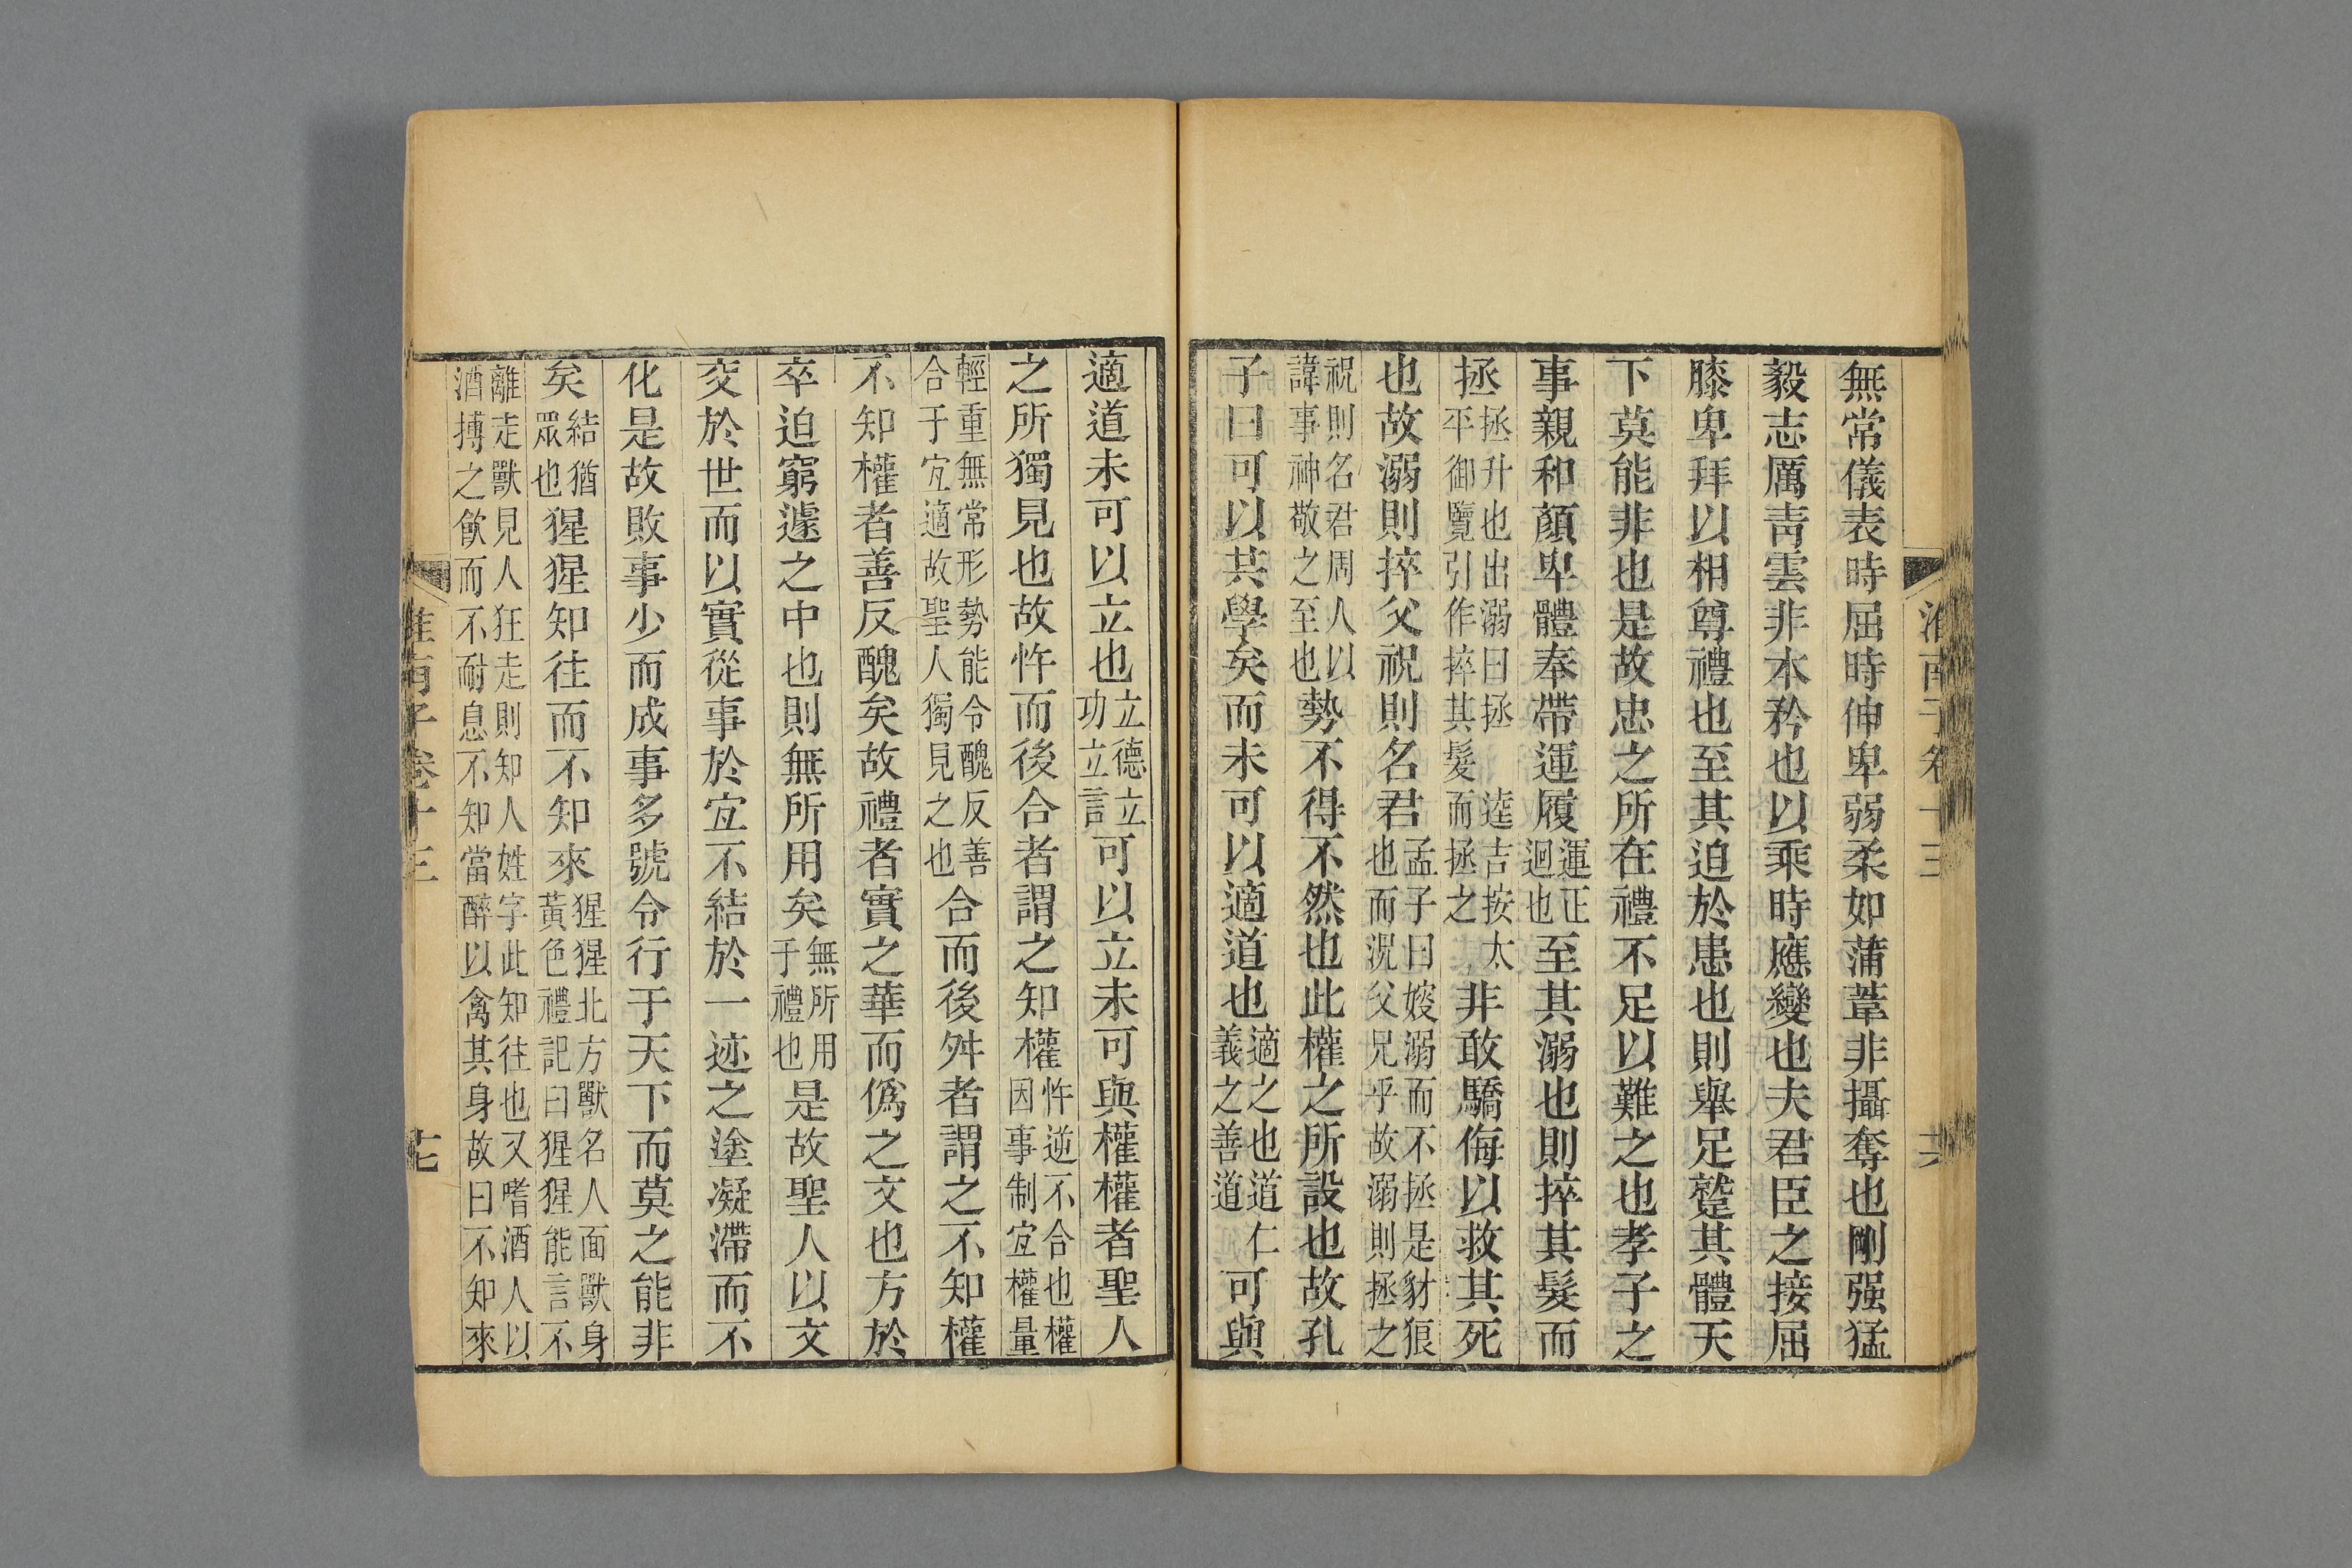 淮南子卷十三
無常儀表時屈時伸卑弱柔如蒲葦非攝奪也剛强猛
毅志厲靑雲非本矜也以乘時應變也夫君臣之接屈
膝卑拜以相尊禮也至其迫於患也則舉足蹵其體天
下莫能非也是故忠之所在禮不足以難之也孝子之
事親和顏卑體奉帶運履運正迴也至其溺也則捽其髮而
拯拯升也出溺曰拯逵吉按太平御覽引作捽其髮而拯之非敢驕侮以救其死
也故溺則捽父祝則名君孟子曰嫂溺而不拯是豺狼也而況父兄乎故溺則拯之
祝則名君周人以諱事神敬之至也勢不得不然也此權之所設也故孔
子曰可以共學矣而未可以適道也適之也道仁義之善道可與
適道未可以立也立德立功立言可以立未可與權權者聖人
之所獨見也故忤而後合者謂之知權忤逆不合也權因事制宜權量
輕重無常形勢能令醜反善合于宜適故聖人獨見之也合而後舛者謂之不知權
不知權者善反醜矣故禮者實之華而僞之文也方於
卒迫窮遽之中也則無所用矣無所用于禮也是故聖人以文
交於世而以實從事於宜不結於一迹之塗凝滯而不
化是故敗事少而成事多號令行于天下而莫之能非
矣結猶眾也猩猩知往而不知來猩猩北方獸名人面獸身黃色禮記曰猩猩能言不
離走獸見人狂走則知人姓字此知往也又嗜酒人以酒搏之飮而不耐息不知當醉以禽其身故曰不知來
淮南子卷十三